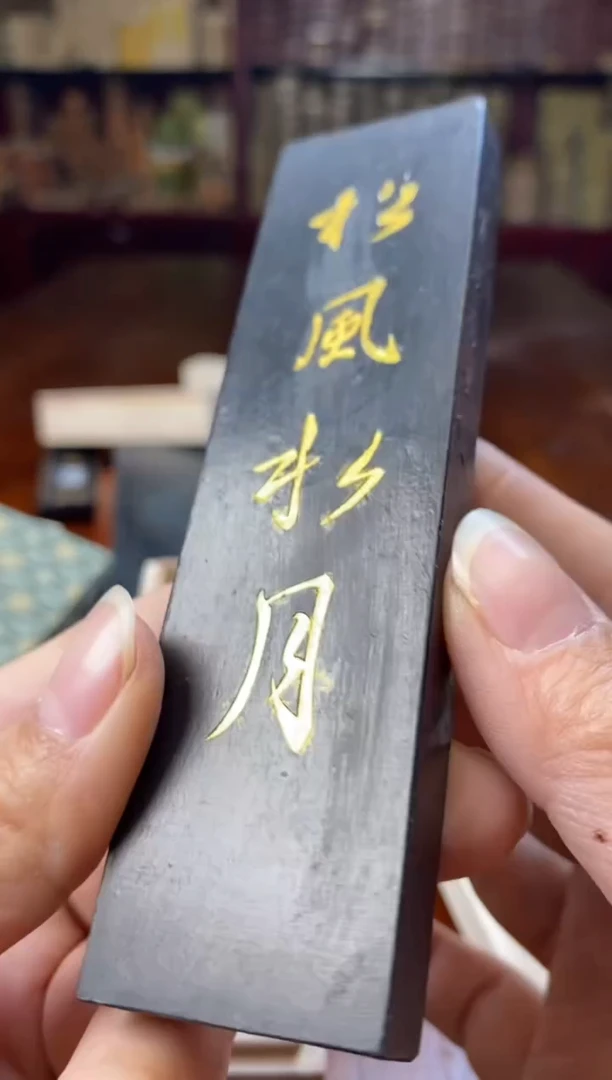 松風水月